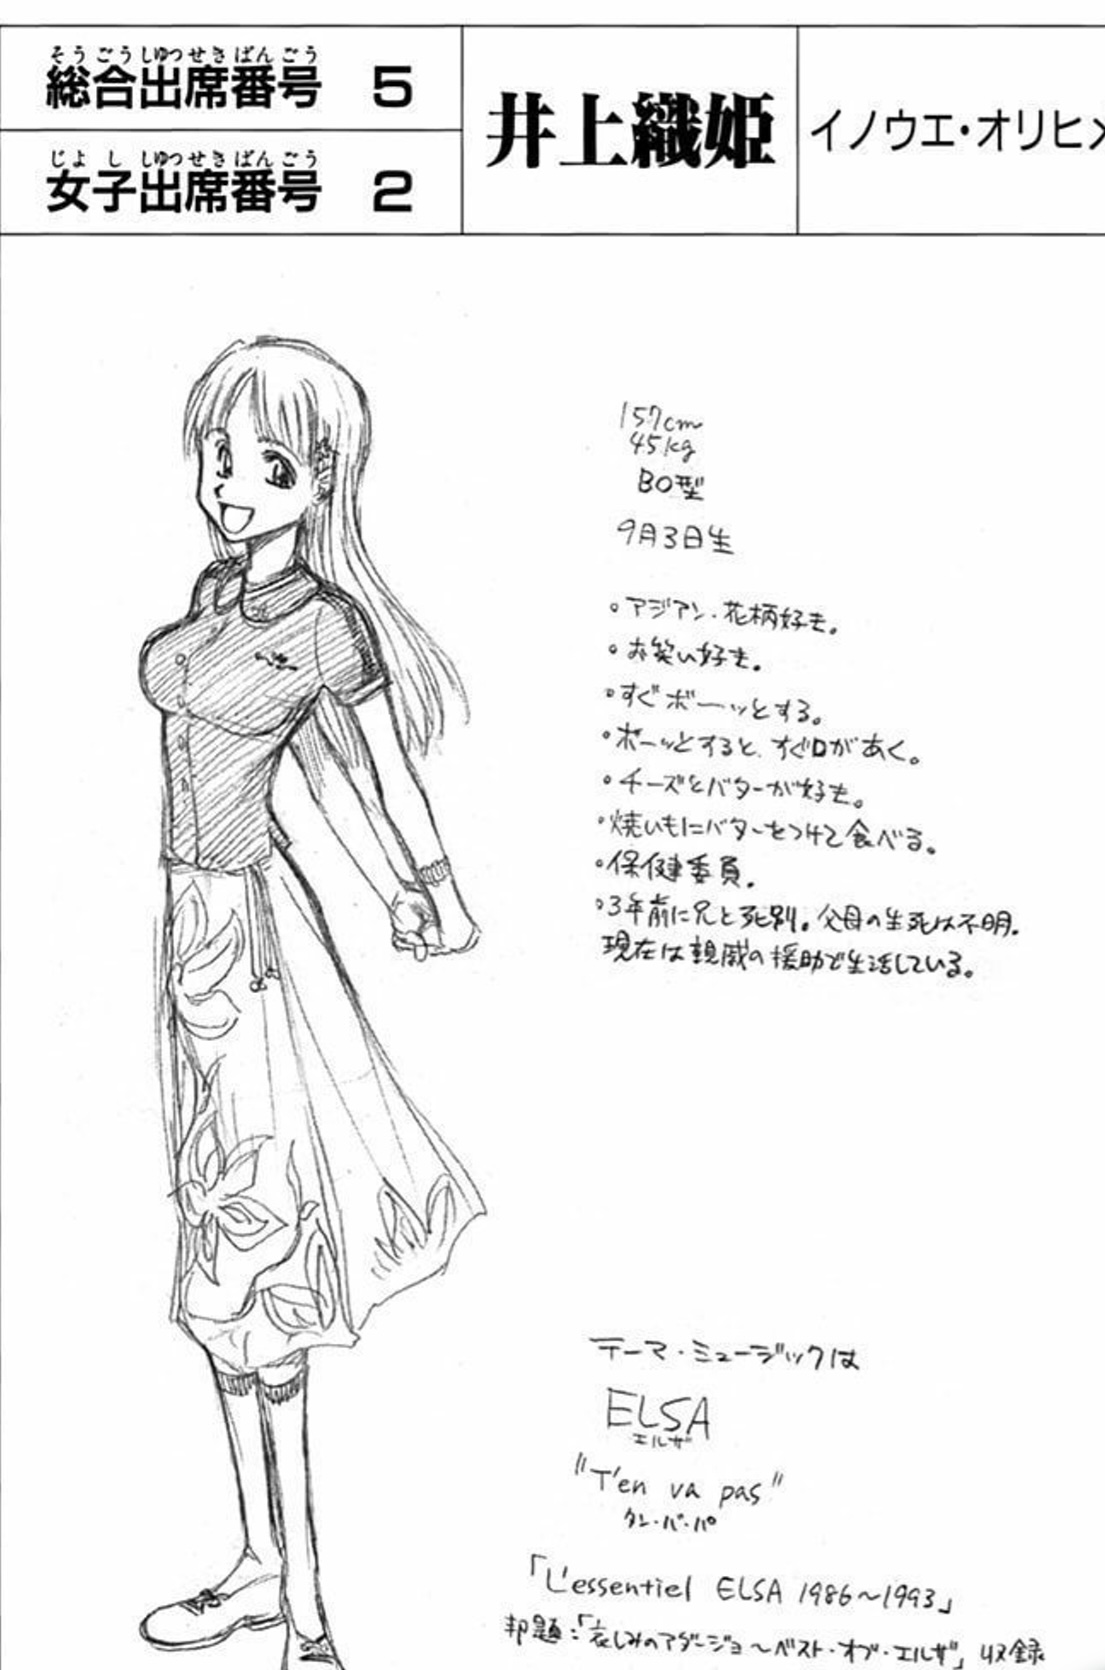 そうごうしゅつせきばんごう
総合出席番号 5
じょししゅつせきばんごう
女子出席番号 2
井上織姫
イノウエ・オリヒメ
157cm
45kg
BO型
9月3日生
・アジアン・花柄好き。
・お笑い好き。
・すぐボーッとする。
・ボーッとすると、すぐ口があく。
・チーズとバターが好き。
・焼いもにバターをつけて食べる。
・保健委員.
・3年前に兄と死別。父母の生死は不明.
現在は親戚の援助で生活している。
テーマ・ミュージックは
ELSA
エルザ
"T'en va pas"
タン・バ・パ
「L'essentiel ELSA 1986〜1993」
邦題:「哀しみのアダージョ〜ベスト・オブ・エルザ」収録